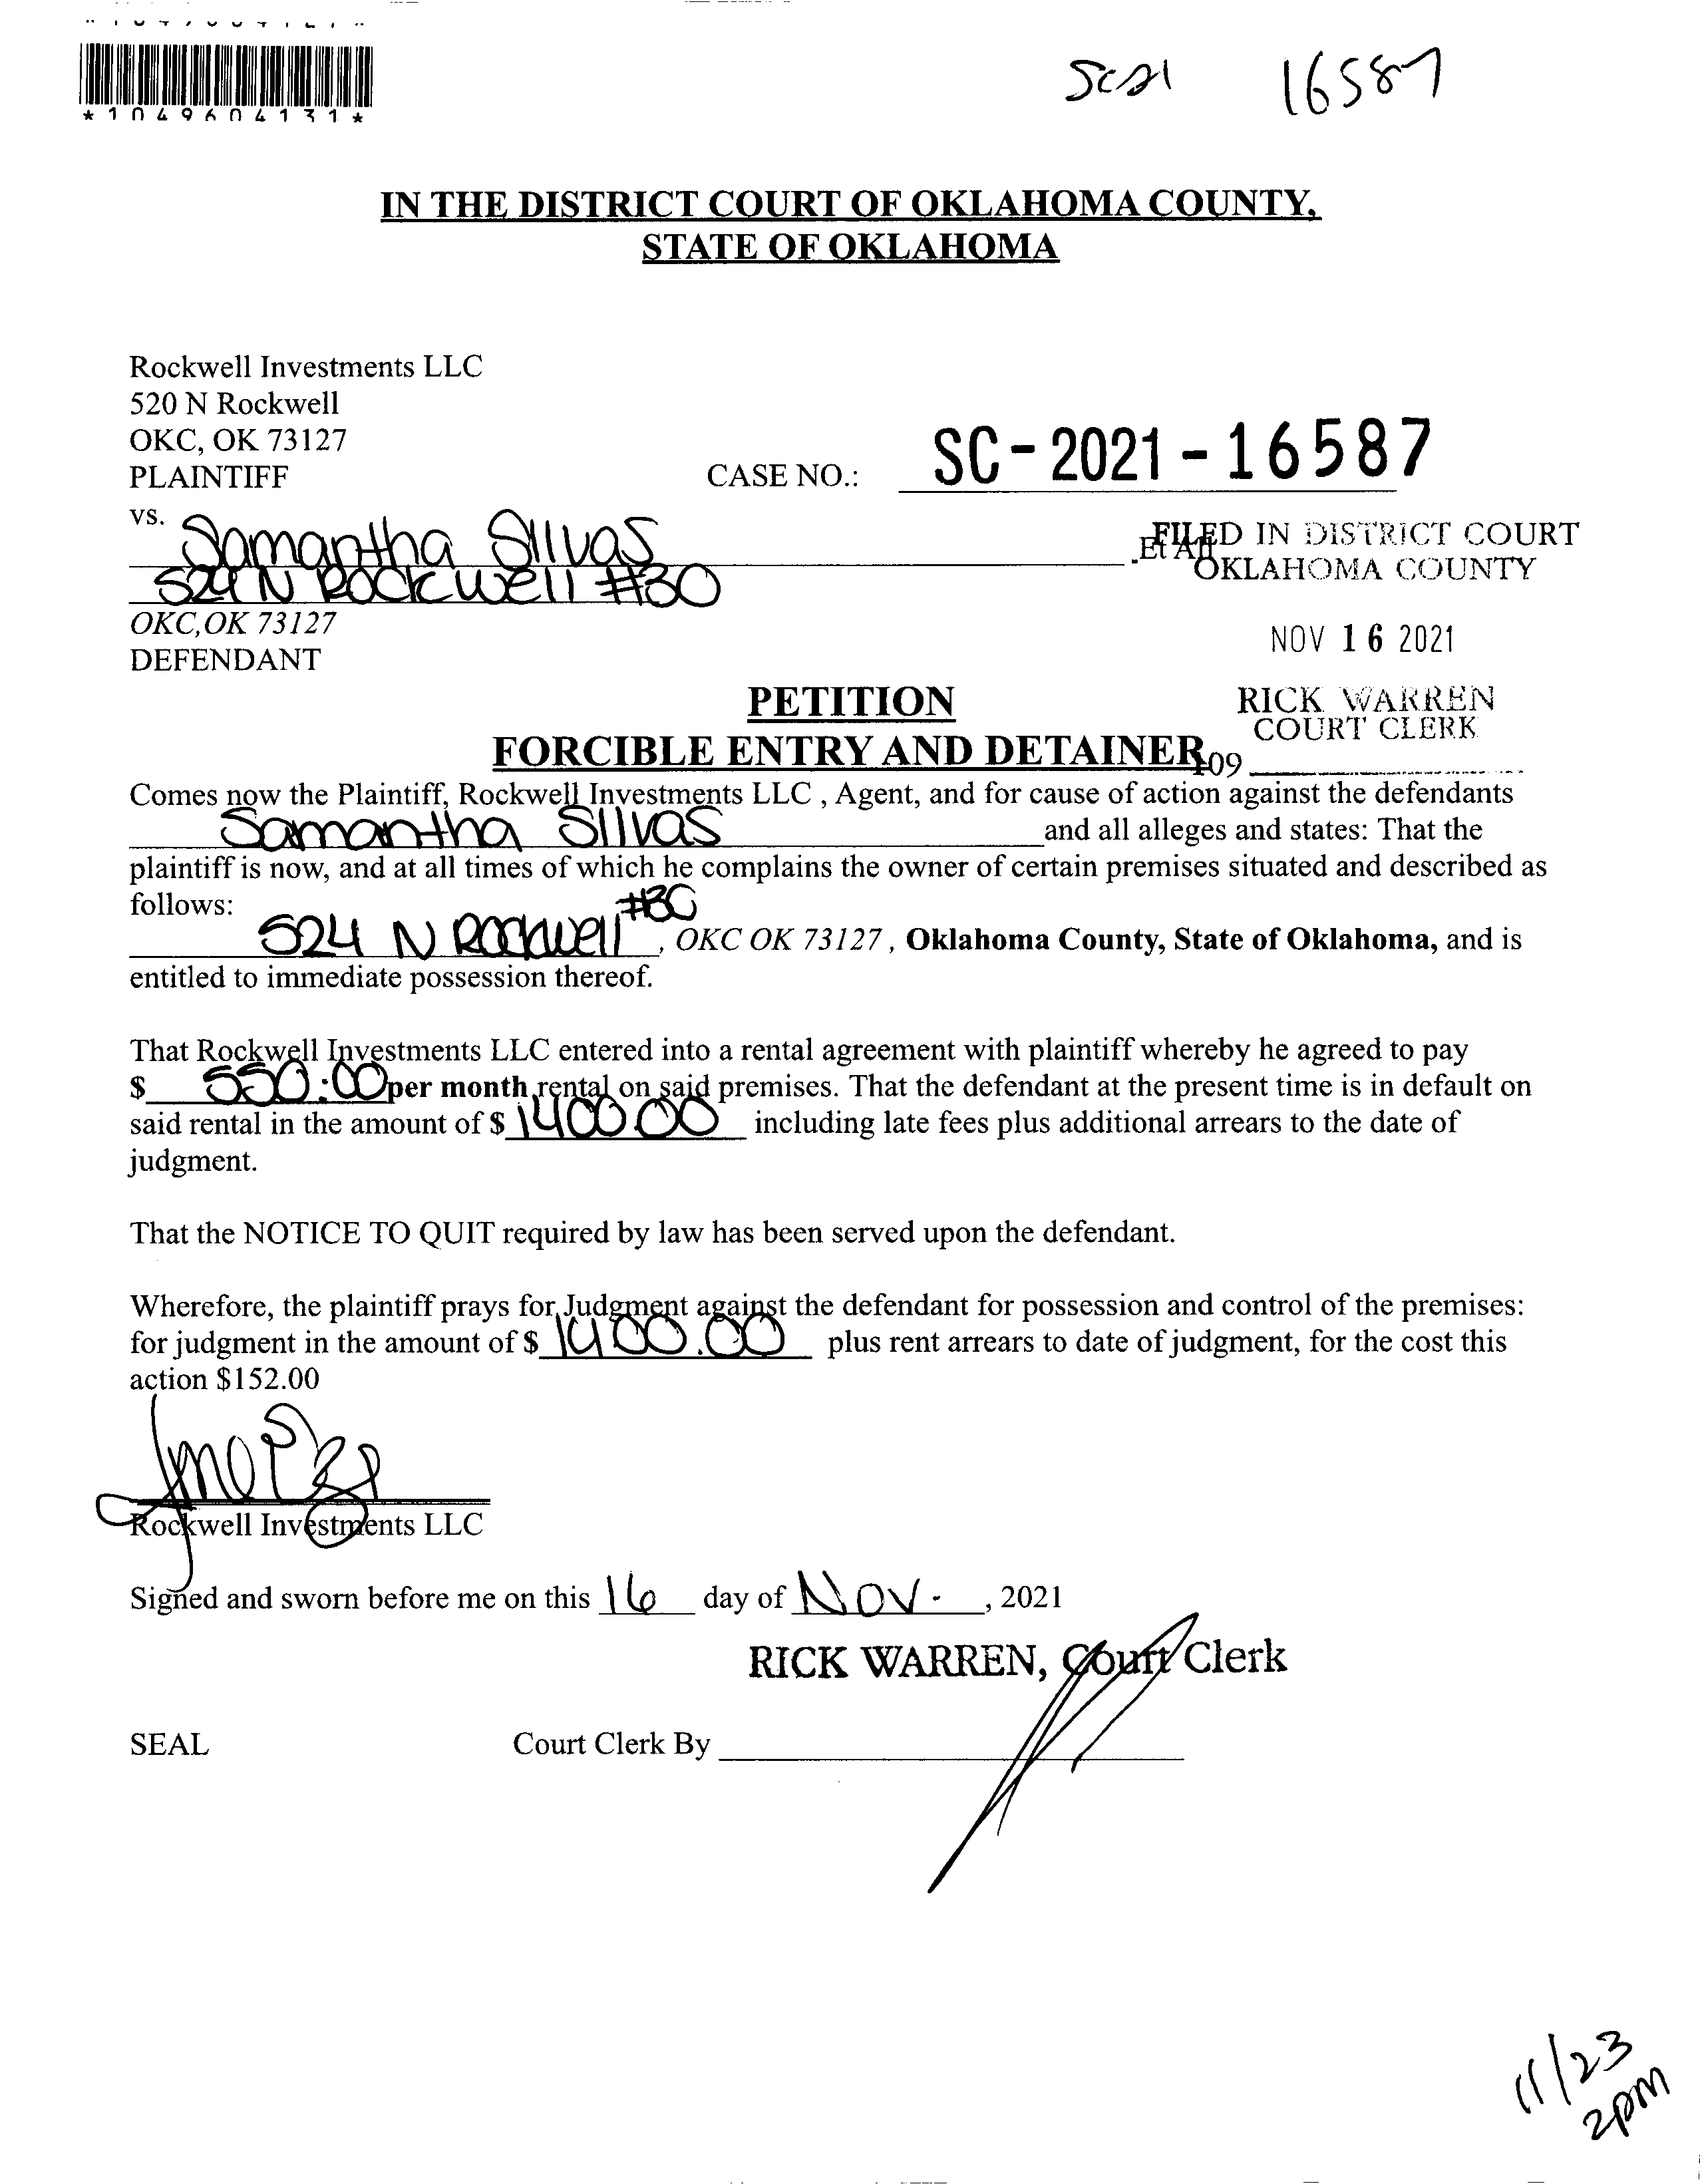 *1049604131*
SC21 16587
IN THE DISTRICT COURT OF OKLAHOMA COUNTY,
STATE OF OKLAHOMA
Rockwell Investments LLC
520 N Rockwell
OKC, OK 73127
PLAINTIFF
CASE NO.: SC-2021-16587
vs.
Samantha Silvas .Et All
524 N Rockwell #30
OKC, OK 73127
DEFENDANT
FILED IN DISTRICT COURT
OKLAHOMA COUNTY
NOV 16 2021
RICK WARREN
COURT CLERK
109
PETITION
FORCIBLE ENTRY AND DETAINER
Comes now the Plaintiff, Rockwell Investments LLC , Agent, and for cause of action against the defendants
Samantha Silvas and all alleges and states: That the
plaintiff is now, and at all times of which he complains the owner of certain premises situated and described as
follows:
524 N Rockwell #30, OKC OK 73127, Oklahoma County, State of Oklahoma, and is
entitled to immediate possession thereof.
That Rockwell Investments LLC entered into a rental agreement with plaintiff whereby he agreed to pay
$ 550.00 per month rental on said premises. That the defendant at the present time is in default on
said rental in the amount of $ 1400.00 including late fees plus additional arrears to the date of
judgment.
That the NOTICE TO QUIT required by law has been served upon the defendant.
Wherefore, the plaintiff prays for Judgment against the defendant for possession and control of the premises:
for judgment in the amount of $ 1400.00 plus rent arrears to date of judgment, for the cost this
action $152.00
Rockwell Investments LLC
Signed and sworn before me on this 16 day of Nov. , 2021
RICK WARREN, Court Clerk
SEAL Court Clerk By
11/23
2pm